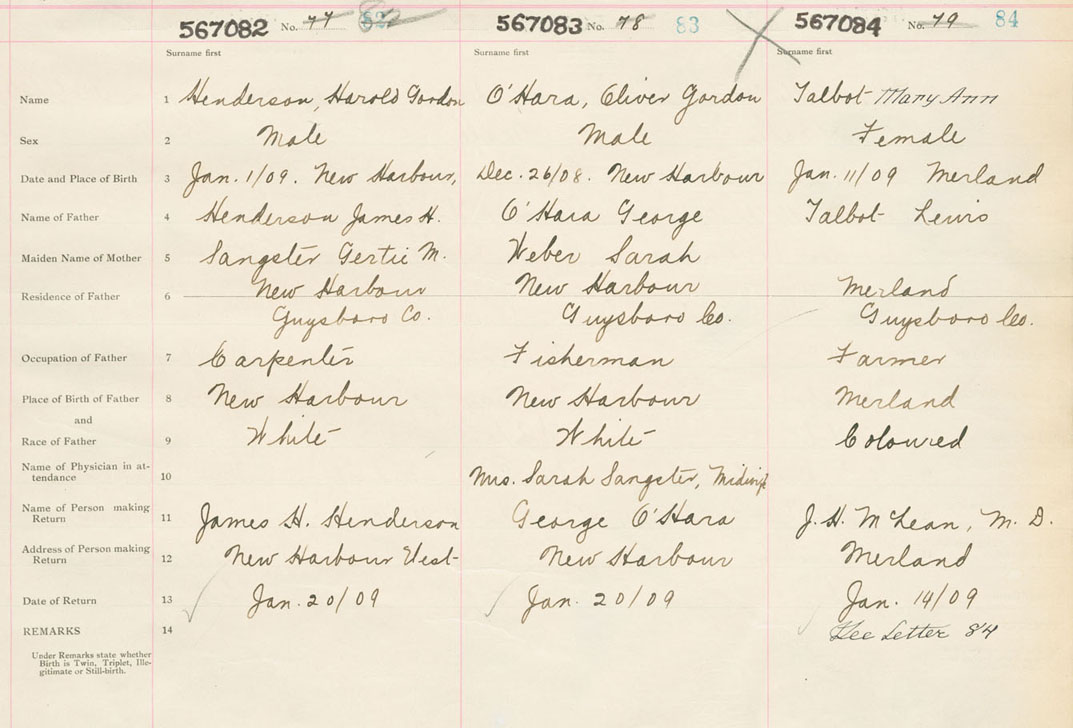 567082 No. 77 82 567083 No. 78 83 567084 No. 79 84
Surname first Surname first Surname first
Name 1 Henderson, Harold Gordon O'Hara, Oliver Gordon Talbot Mary Ann
Sex 2 Male Male Female
Date and Place of Birth 3 Jan. 1/09. New Harbour, Dec. 26/08. New Harbour Jan. 11/09 Merland
Name of Father 4 Henderson James H. O'Hara George Talbot Lewis
Maiden Name of Mother 5 Sangster Gertie M. Weber Sarah
Residence of Father 6 New Harbour New Harbour Merland
Guysboro Co. Guysboro Co. Guysboro Co.
Occupation of Father 7 Carpenter Fisherman Farmer
Place of Birth of Father 8 New Harbour New Harbour Merland
and
Race of Father 9 White White Coloured
Name of Physician in at-
tendance 10 Mrs. Sarah Sangster, Midwife
Name of Person making
Return 11 James H. Henderson George O'Hara J. H. McLean, M. D.
Address of Person making
Return 12 New Harbour West New Harbour Merland
Date of Return 13 Jan. 20/09 Jan. 20/09 Jan. 14/09
REMARKS 14 See Letter 84
Under Remarks state whether
Birth is Twin, Triplet, Ille-
gitimate or Still-birth.